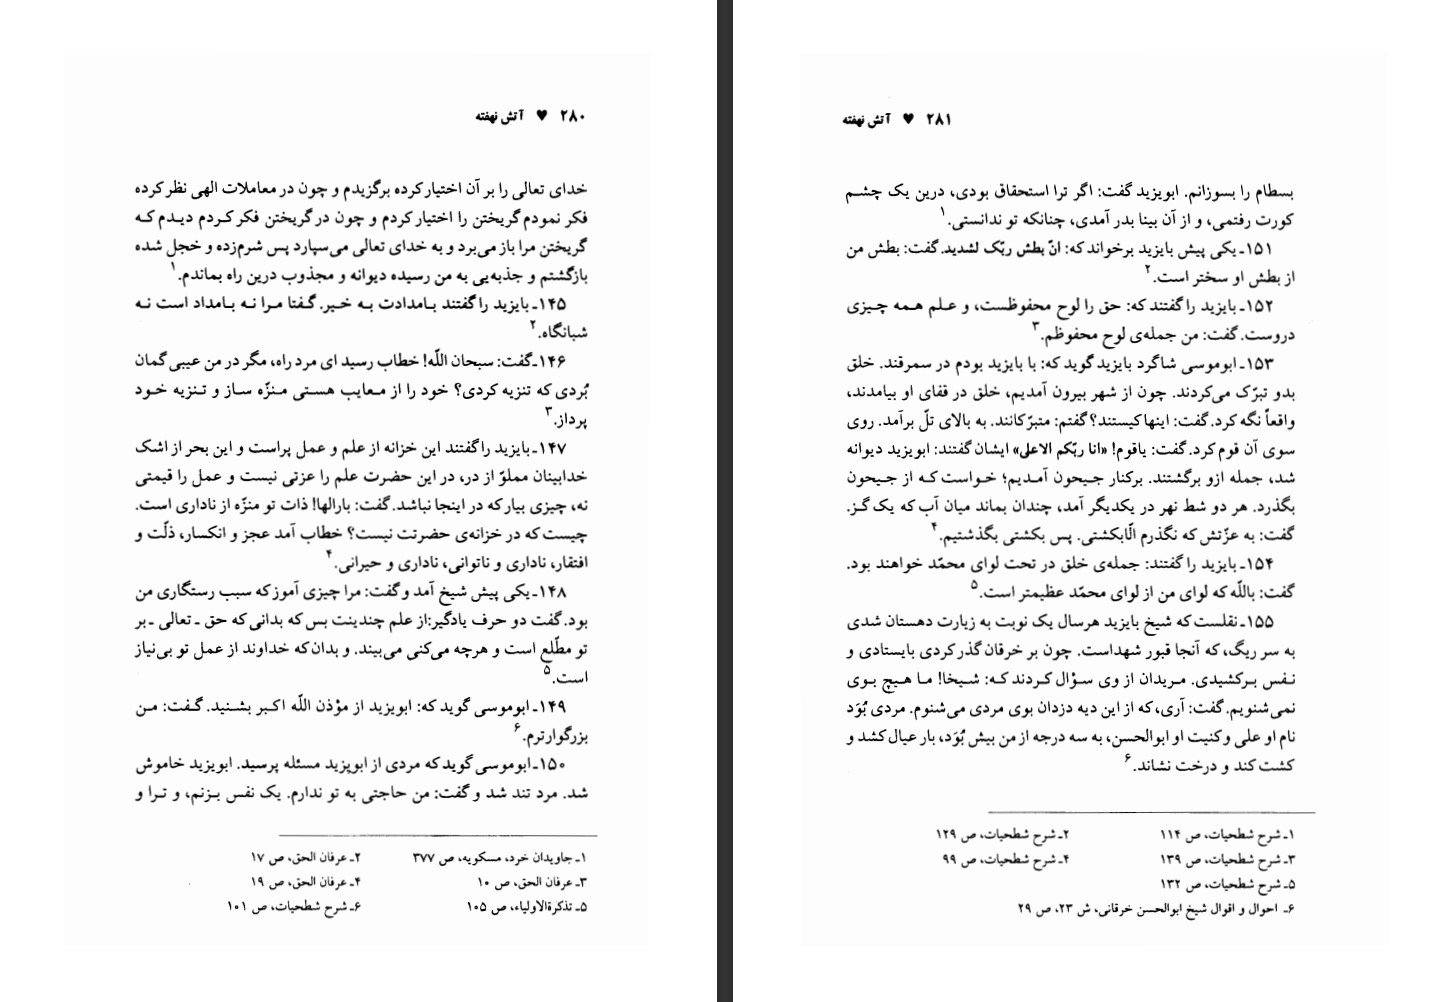 ۲۸۰ ♥ آتش نهفته
خدای تعالی را بر آن اختیار کرده برگزیدم و چون در معاملات الهی نظر کرده
فکر نمودم گریختن را اختیار کردم و چون در گریختن فکر کردم دیدم که
گریختن مرا باز می‌برد و به خدای تعالی می‌سپارد پس شرم‌زده و خجل شده
بازگشتم و جذبه‌یی به من رسیده دیوانه و مجذوب درین راه بماندم.۱
۱۴۵ـ بایزید را گفتند بامدادت به خیر. گفتا مرا نه بامداد است نه
شبانگاه.۲
۱۴۶ـ گفت: سبحان اللّه! خطاب رسید ای مرد راه، مگر در من عیبی گمان
بُردی که تنزیه کردی؟ خود را از معایب هستی منزّه ساز و تنزیه خود
پرداز.۳
۱۴۷ـ بایزید را گفتند این خزانه از علم و عمل پراست و این بحر از اشک
خدابینان مملوّ از در، در این حضرت علم را عزتی نیست و عمل را قیمتی
نه، چیزی بیار که در اینجا نباشد. گفت: بارالها! ذات تو منزّه از ناداری است.
چیست که در خزانه‌ی حضرتت نیست؟ خطاب آمد عجز و انکسار، ذلّت و
افتقار، ناداری و ناتوانی، ناداری و حیرانی.۴
۱۴۸ـ یکی پیش شیخ آمد و گفت: مرا چیزی آموز که سبب رستگاری من
بود. گفت دو حرف یادگیر: از علم چندینت بس که بدانی که حق ـ تعالی ـ بر
تو مطّلع است و هرچه می‌کنی می‌بیند. و بدان که خداوند از عمل تو بی‌نیاز
است.۵
۱۴۹ـ ابوموسی گوید که: ابویزید از مؤذن اللّه اکبر بشنید. گفت: من
بزرگوارترم.۶
۱۵۰ـ ابوموسی گوید که مردی از ابویزید مسئله پرسید. ابویزید خاموش
شد. مرد تند شد و گفت: من حاجتی به تو ندارم. یک نفس بزنم، و ترا و
۱ـ جاویدان خرد، مسکویه، ص ۳۷۷ ۲ـ عرفان الحق، ص ۱۷
۳ـ عرفان الحق، ص ۱۰ ۴ـ عرفان الحق، ص ۱۹
۵ـ تذکرةالاولیاء، ص ۱۰۵ ۶ـ شرح شطحیات، ص ۱۰۱
۲۸۱ ♥ آتش نهفته
بسطام را بسوزانم. ابویزید گفت: اگر ترا استحقاق بودی، درین یک چشم
کورت رفتمی، و از آن بینا بدر آمدی، چنانکه تو ندانستی.۱
۱۵۱ـ یکی پیش بایزید برخواند که: انّ بطش ربّک لشدید. گفت: بطش من
از بطش او سختر است.۲
۱۵۲ـ بایزید را گفتند که: حق را لوح محفوظست، و علم همه چیزی
دروست. گفت: من جمله‌ی لوح محفوظم.۳
۱۵۳ـ ابوموسی شاگرد بایزید گوید که: با بایزید بودم در سمرقند. خلق
بدو تبرّک می‌کردند. چون از شهر بیرون آمدیم، خلق در قفای او بیامدند،
واقعاً نگه کرد. گفت: اینها کیستند؟ گفتم: متبرّکانند. به بالای تلّ برآمد. روی
سوی آن قوم کرد. گفت: یاقوم! «انا ربّکم الاعلی» ایشان گفتند: ابویزید دیوانه
شد، جمله ازو برگشتند. برکنار جیحون آمدیم؛ خواست که از جیحون
بگذرد. هر دو شط نهر در یکدیگر آمد، چندان بماند میان آب که یک گز.
گفت: به عزّتش که نگذرم الّابکشتی. پس بکشتی بگذشتیم.۴
۱۵۴ـ بایزید را گفتند: جمله‌ی خلق در تحت لوای محمّد خواهند بود.
گفت: باللّه که لوای من از لوای محمّد عظیمتر است.۵
۱۵۵ـ نقلست که شیخ بایزید هرسال یک نوبت به زیارت دهستان شدی
به سر ریگ، که آنجا قبور شهداست. چون بر خرقان گذر کردی بایستادی و
نفس برکشیدی. مریدان از وی سؤال کردند که: شیخا! ما هیچ بوی
نمی‌شنویم. گفت: آری، که از این دیه دزدان بوی مردی می‌شنوم. مردی بُوَد
نام او علی و کنیت او ابوالحسن، به سه درجه از من بیش بُوَد، بار عیال کشد و
کشت کند و درخت نشاند.۶
۱ـ شرح شطحیات، ص ۱۱۴ ۲ـ شرح شطحیات، ص ۱۲۹
۳ـ شرح شطحیات، ص ۱۳۹ ۴ـ شرح شطحیات، ص ۹۹
۵ـ شرح شطحیات، ص ۱۳۲
۶ـ احوال و اقوال شیخ ابوالحسن خرقانی، ش ۲۳، ص ۲۹